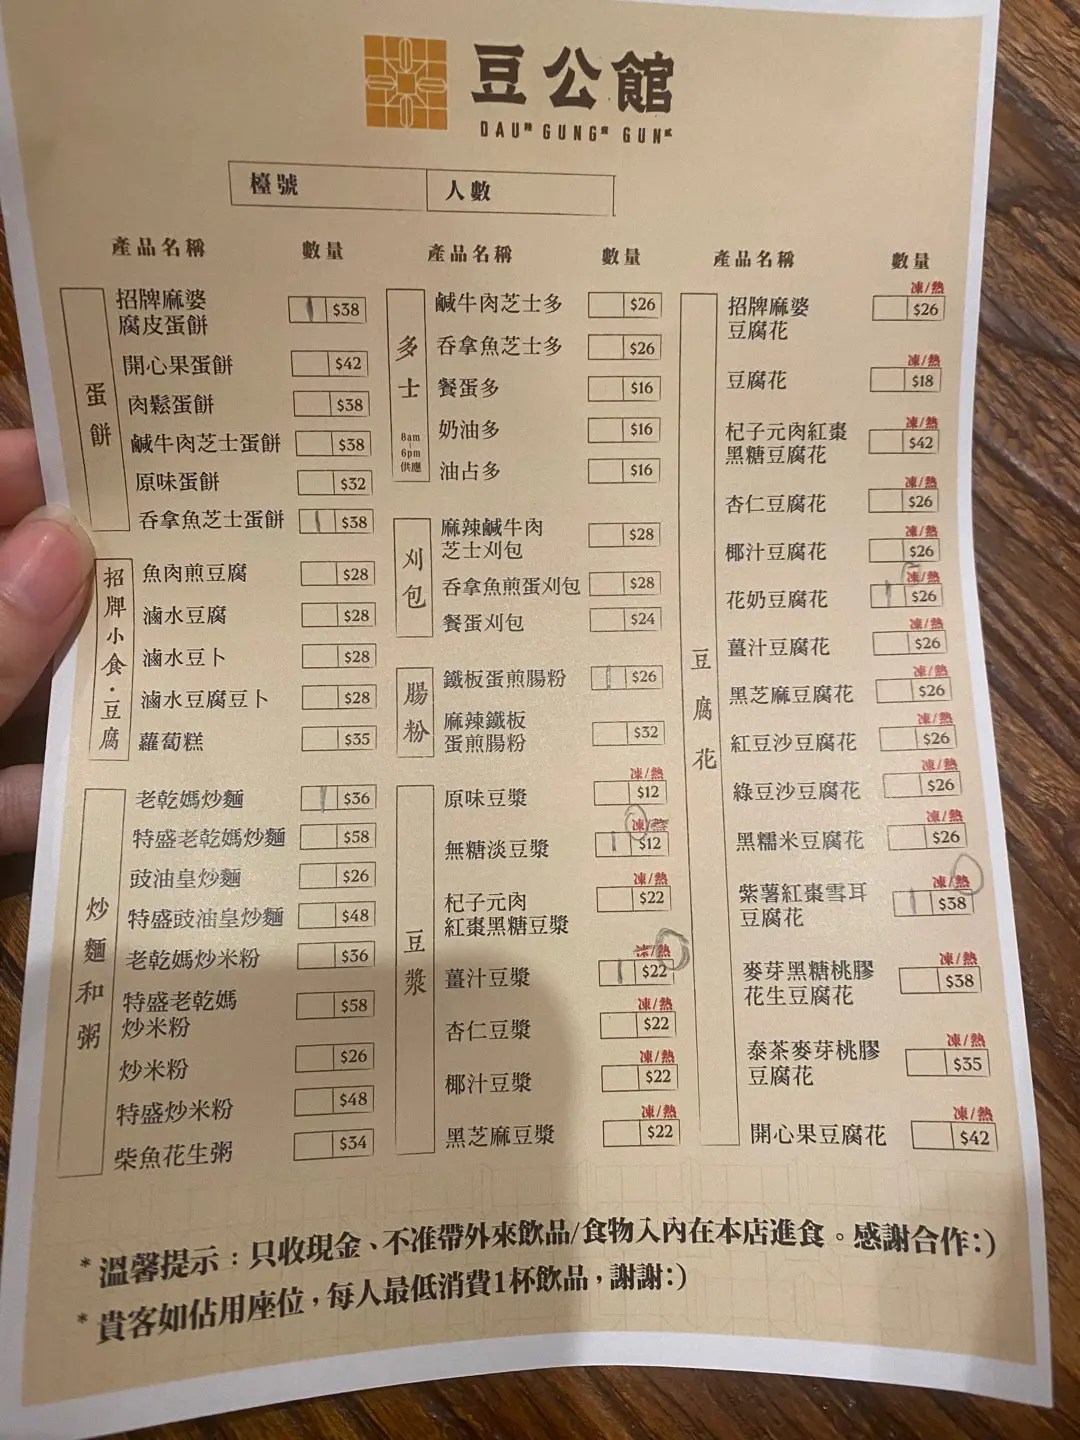 豆公館
DAU GUNG GUN
檯號 人數
產品名稱 數量
蛋餅
招牌麻婆
腐皮蛋餅 $38
開心果蛋餅 $42
肉鬆蛋餅 $38
鹹牛肉芝士蛋餅 $38
原味蛋餅 $32
吞拿魚芝士蛋餅 $38
招牌小食·豆腐
魚肉煎豆腐 $28
滷水豆腐 $28
滷水豆卜 $28
滷水豆腐豆卜 $28
蘿蔔糕 $35
炒麵和粥
老乾媽炒麵 $36
特盛老乾媽炒麵 $58
豉油皇炒麵 $26
特盛豉油皇炒麵 $48
老乾媽炒米粉 $36
特盛老乾媽
炒米粉 $58
炒米粉 $26
特盛炒米粉 $48
柴魚花生粥 $34
產品名稱 數量
多士
8am
|
6pm
供應
鹹牛肉芝士多 $26
吞拿魚芝士多 $26
餐蛋多 $16
奶油多 $16
油占多 $16
刈包
麻辣鹹牛肉
芝士刈包 $28
吞拿魚煎蛋刈包 $28
餐蛋刈包 $24
腸粉
鐵板蛋煎腸粉 $26
麻辣鐵板
蛋煎腸粉 $32
豆漿
凍/熱
原味豆漿 $12
凍/熱
無糖淡豆漿 $12
凍/熱
杞子元肉 $22
紅棗黑糖豆漿
凍/熱
薑汁豆漿 $22
凍/熱
杏仁豆漿 $22
凍/熱
椰汁豆漿 $22
凍/熱
黑芝麻豆漿 $22
產品名稱 數量
豆腐花
凍/熱
招牌麻婆 $26
豆腐花
凍/熱
豆腐花 $18
凍/熱
杞子元肉紅棗 $42
黑糖豆腐花
凍/熱
杏仁豆腐花 $26
凍/熱
椰汁豆腐花 $26
凍/熱
花奶豆腐花 $26
凍/熱
薑汁豆腐花 $26
凍/熱
黑芝麻豆腐花 $26
凍/熱
紅豆沙豆腐花 $26
凍/熱
綠豆沙豆腐花 $26
凍/熱
黑糯米豆腐花 $26
凍/熱
紫薯紅棗雪耳 $38
豆腐花
凍/熱
麥芽黑糖桃膠 $38
花生豆腐花
凍/熱
泰茶麥芽桃膠 $35
豆腐花
凍/熱
開心果豆腐花 $42
* 溫馨提示：只收現金、不准帶外來飲品/食物入內在本店進食。感謝合作:)
* 貴客如佔用座位，每人最低消費1杯飲品，謝謝:)